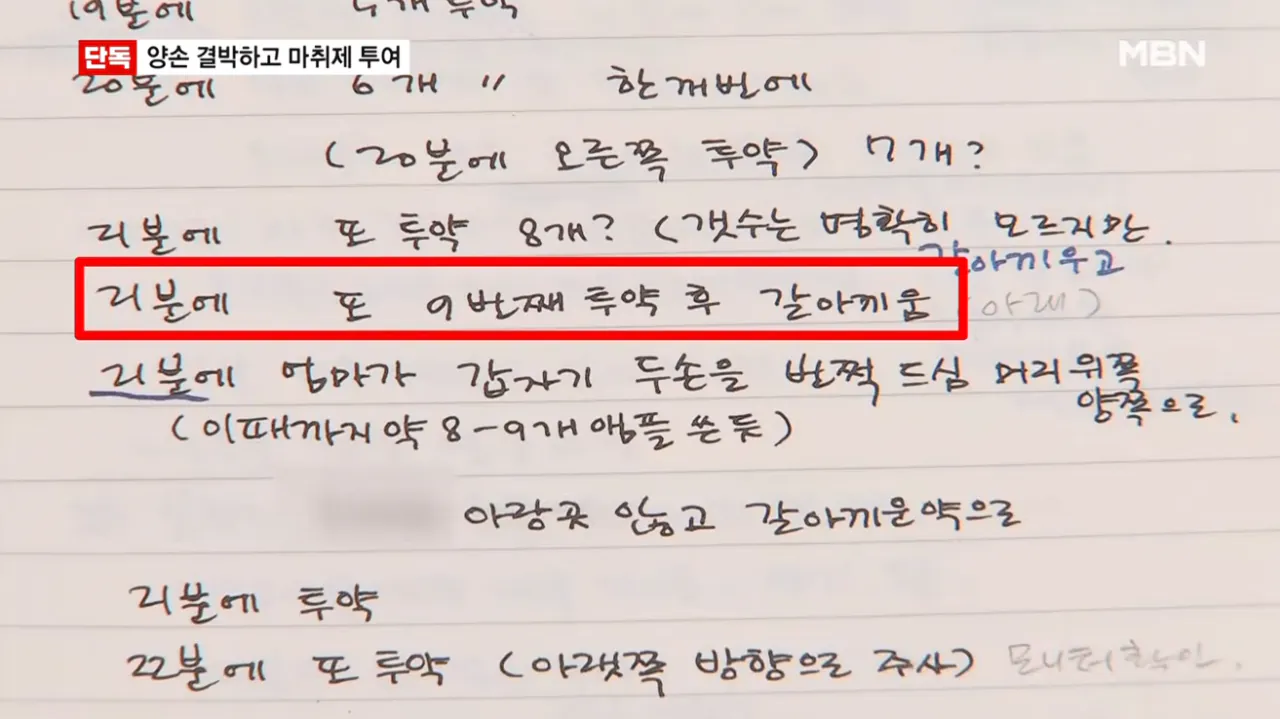 19분에 5개 투약
단독 양손 결박하고 마취제 투여
MBN
20분에 6개 〃 한꺼번에
(20분에 오른쪽 투약) 7개?
21분에 또 투약 8개? (갯수는 명확히 모르지만.
갈아끼우고
21분에 또 9번째 투약 후 갈아끼움
아래)
21분에 엄마가 갑자기 두손을 번쩍 드심 머리위쪽
양쪽으로.
(이때까지 약 8-9개 앰플 쓴 듯)
아랑곳 않고 갈아끼운약으로
21분에 투약
22분에 또 투약 (아랫쪽 방향으로 주사) 모니터확인.